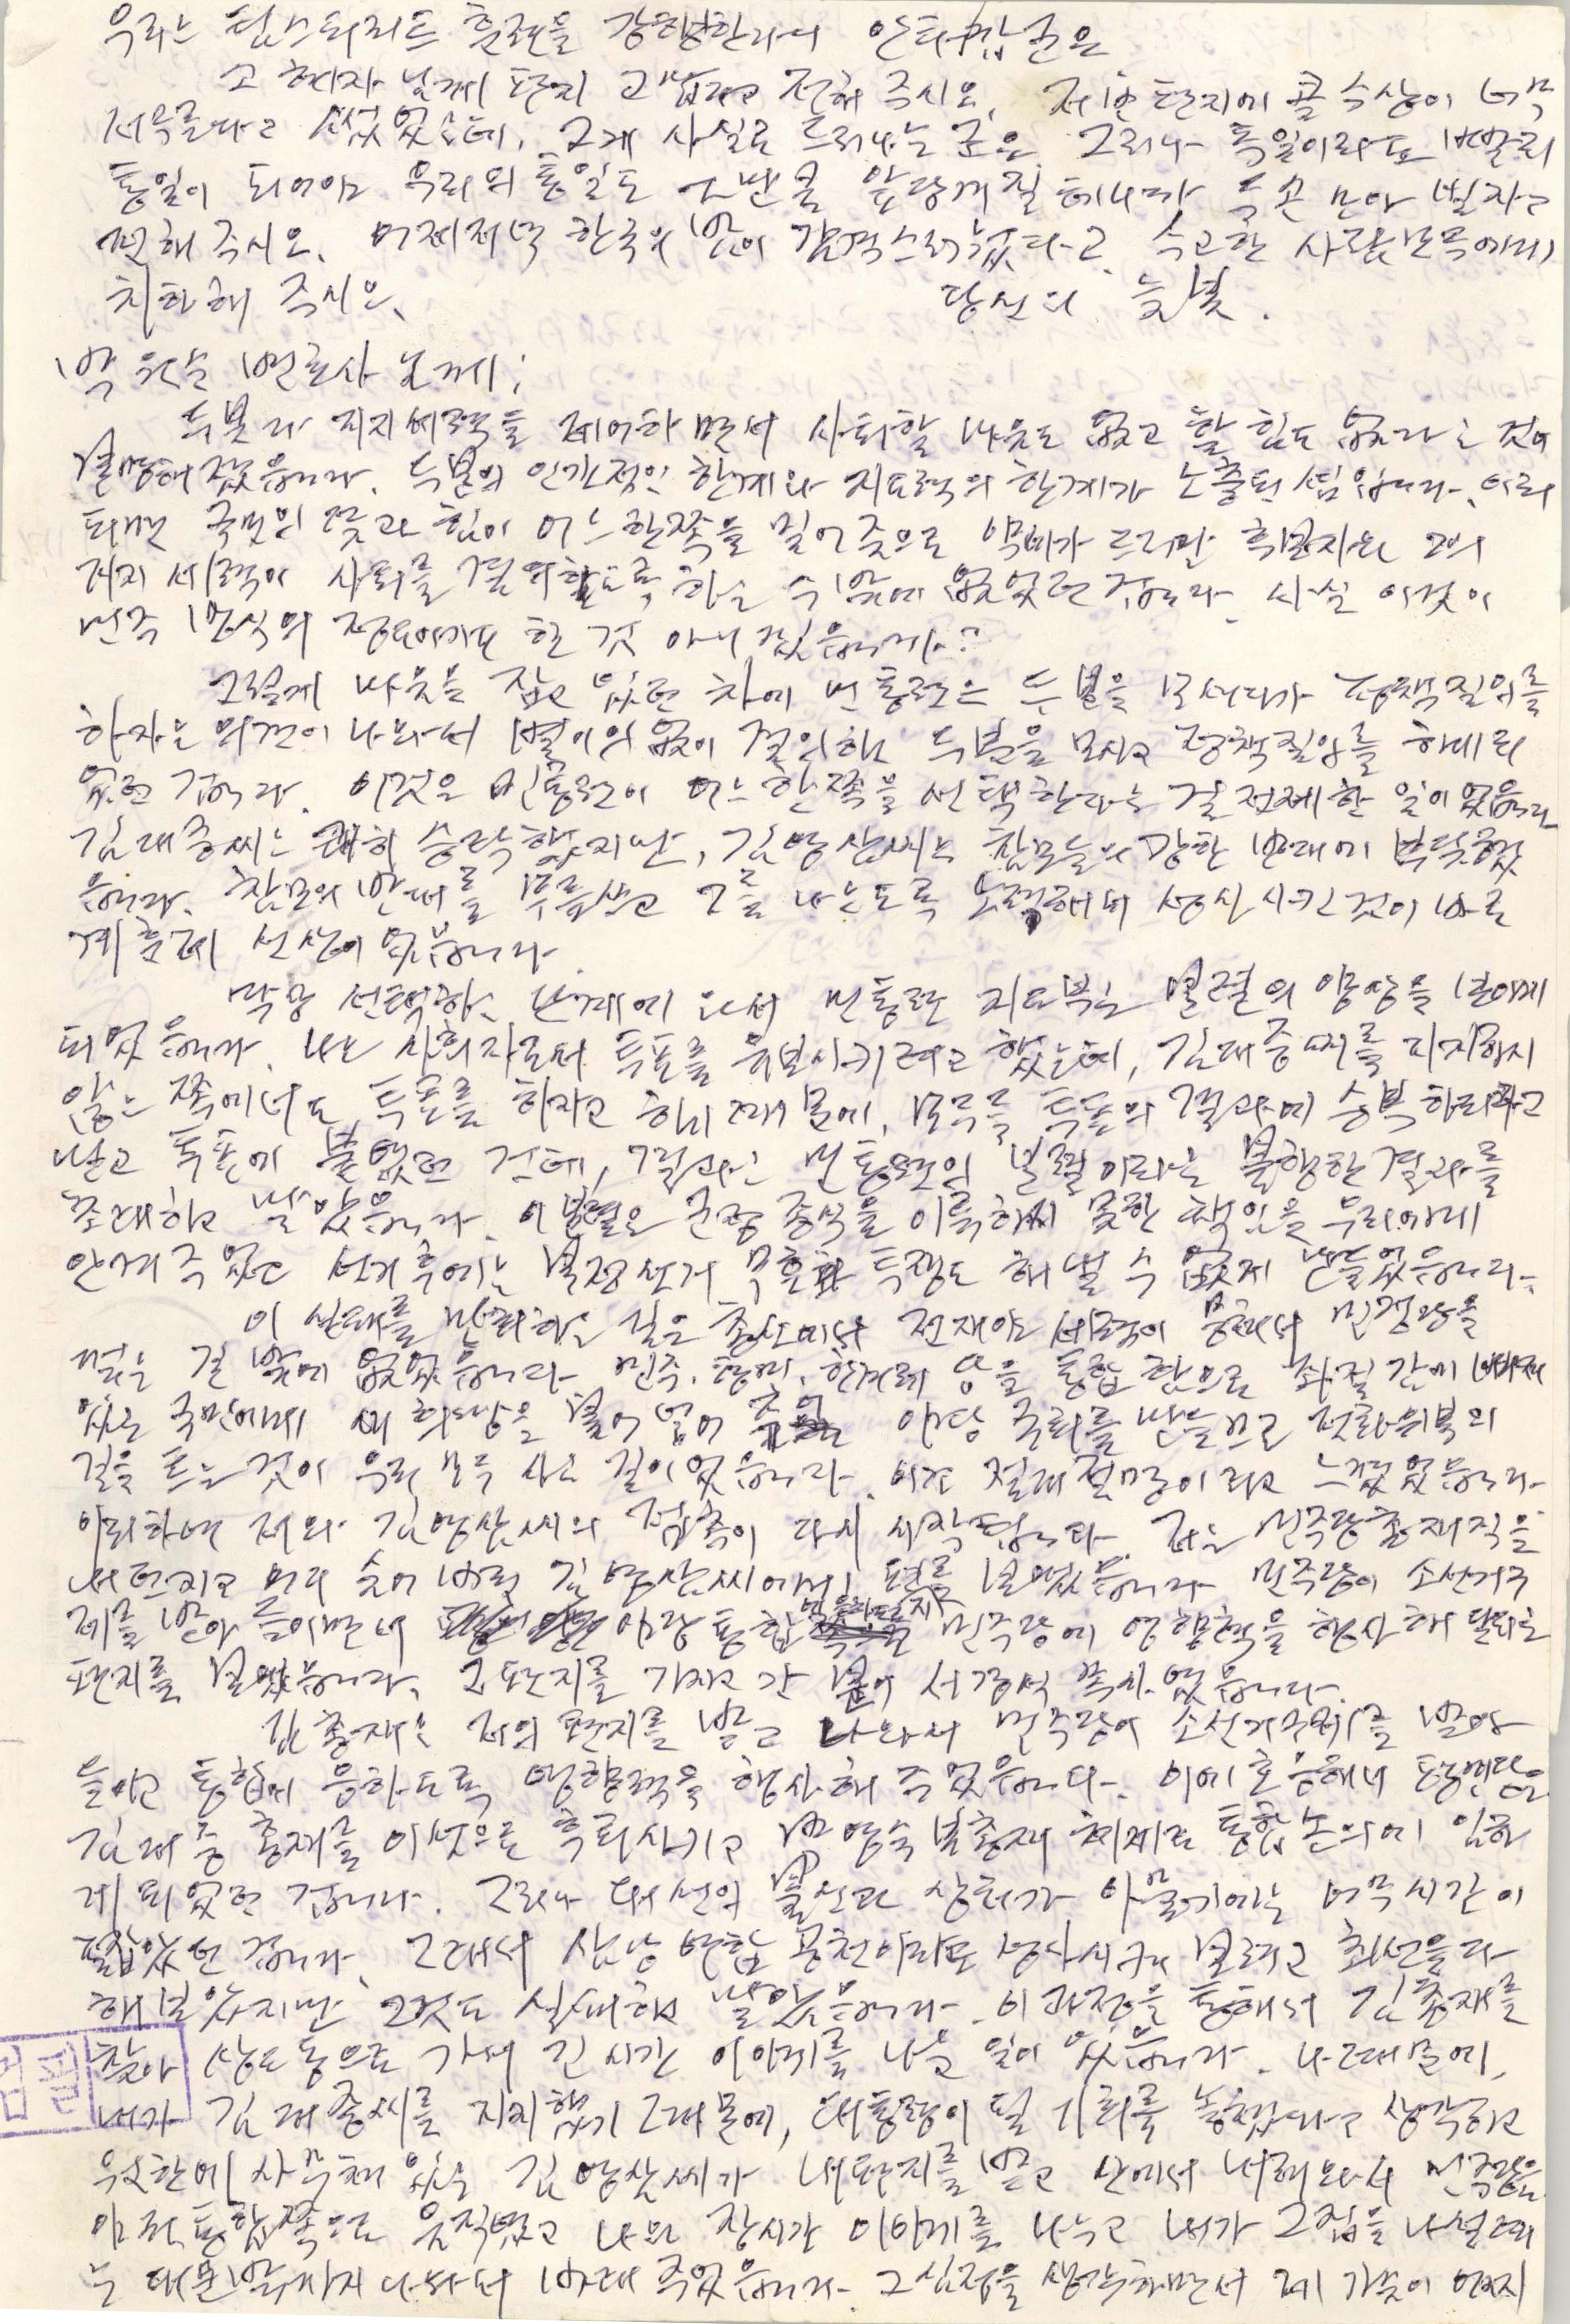 우리는 팀스피리트 훈련을 강행한다니 안타깝군요
고 혜자 님께 편지 고맙다고 전해 주시오. 저번 편지에 콜 수상이 너무
서두른다고 썼었는데, 그게 사실로 드러나는군요. 그러나 독일이라도 빨리
통일이 되어야 우리의 통일도 그만큼 앞당겨질 테니까 두 손 모아 빌자고
전해 주시오. 어제저녁 한국의 밤이 감격스러웠다고. 수고한 사람 모두에게
치하해 주시오. 당신의 늦봄.
박 원순 변호사 님께;
두 분 다 지지세력들 제어하면서 사퇴할 마음도 없고 할 힘도 없다는 것이
분명해졌습니다. 두 분의 인간적인 한계와 지도력의 한계가 노출된 셈입니다. 이리
되면 국민의 뜻과 힘이 어느 한쪽을 밀어줌으로 약비가 드러난 후보자와 그의
지지세력이 사퇴를 결의하도록 하는 수밖에 없었던 겁니다. 사실 이것이
민주 방식의 정도이기도 한 것 아니겠습니까?
그렇게 마음을 잡고 있던 차에 민통련은 두 분을 모셔다가 정책질의를
하자는 의견이 나와서 별 이의 없이 결의하고 두 분을 모시고 정책질의를 하게 되
었던 겁니다. 이것은 민통련이 어느 한쪽을 선택한다는 걸 전제한 일이었습니다.
김대중씨는 쾌히 승락했지만, 김영삼씨는 참모들의 강한 반대에 부딪혔
습니다. 참모의 반대를 무릅쓰고 그를 나오도록 노력해서 성사시킨 것이 바로
계훈제 선생이었습니다.
막상 선택하는 단계에 와서 민통련 지도부는 분렬의 양상을 보이게
되었습니다. 나는 사회자로서 투표를 유보시키려고 했는데, 김대중씨를 지지하지
않는 쪽에서도 투표를 하자고 하기 때문에, 모두들 투표의 결과에 승복하리라고
믿고 투표에 붙였던 건데, 결과는 민통련의 분렬이라는 불행한 결과를
초래하고 말았습니다. 이 분렬은 군정종식을 이룩하지 못한 책임을 우리에게
안겨주었고 선거 후에는 부정선거 무효화 투쟁도 해 볼 수 없게 만들었습니다.
이 사태를 만회하는 길은 총선에서 전 재야 세력이 뭉쳐서 민정당을
꺾는 길밖에 없었습니다. 민주, 평민, 한겨레 당을 통합함으로 좌절감에 빠져
있는 국민에게 새 희망을 불어 넣어 주어 야당 국회를 만듦으로 전화위복의
길을 트는 것이 우리 모두 사는 길이었습니다. 이건 절대절명이라고 느꼈었습니다.
이리하여 저와 김영삼씨의 접촉이 다시 시작됩니다. 저는 민주당 총재직을
내던지고 어디 숨어 버린 김영삼씨에게 편지를 보냈습니다. 민주당이 소선거구
제를 받아들이면서 야당 통합 민주당에 영향력을 행사해 달라는
편지를 보냈습니다. 그 편지를 가지고 간 분이 서경석 목사였습니다.
김총재는 저의 편지를 받고 나와서 민주당이 소선거구제를 받아
들이고 통합에 응하도록 영향력을 행사해 주었습니다. 이에 호응해서 평민당은
김대중 총재를 이선으로 후퇴시키고 박영숙 부총재 체제로 통합 논의에 임하
게 되었던 겁니다. 그러나 대선의 불신과 상처가 아물기에는 너무 시간이
짧았던 겁니다. 그래서 삼당 연합 공천이라도 성사시켜 보려고 최선을 다
해 보았지만 그것도 실패하고 말았습니다. 이 과정을 통해서 김총재를
찾아 상도동으로 가서 긴 시간 이야기를 나눈 일이 있습니다. 나 때문에,
내가 김대중씨를 지지했기 때문에, 대통령이 될 기회를 놓쳤다고 생각하고
유한에 사무쳐 있는 김영삼씨가 내 편지를 받고 산에서 내려와서 민주당을
야권 통합쪽으로 움직였고 나와 장시간 이야기를 나누고 내가 그 집을 나설 때
는 대문 밖까지 나와서 바래 주었습니다. 그 심정을 생각하면서 제 가슴이 먼지